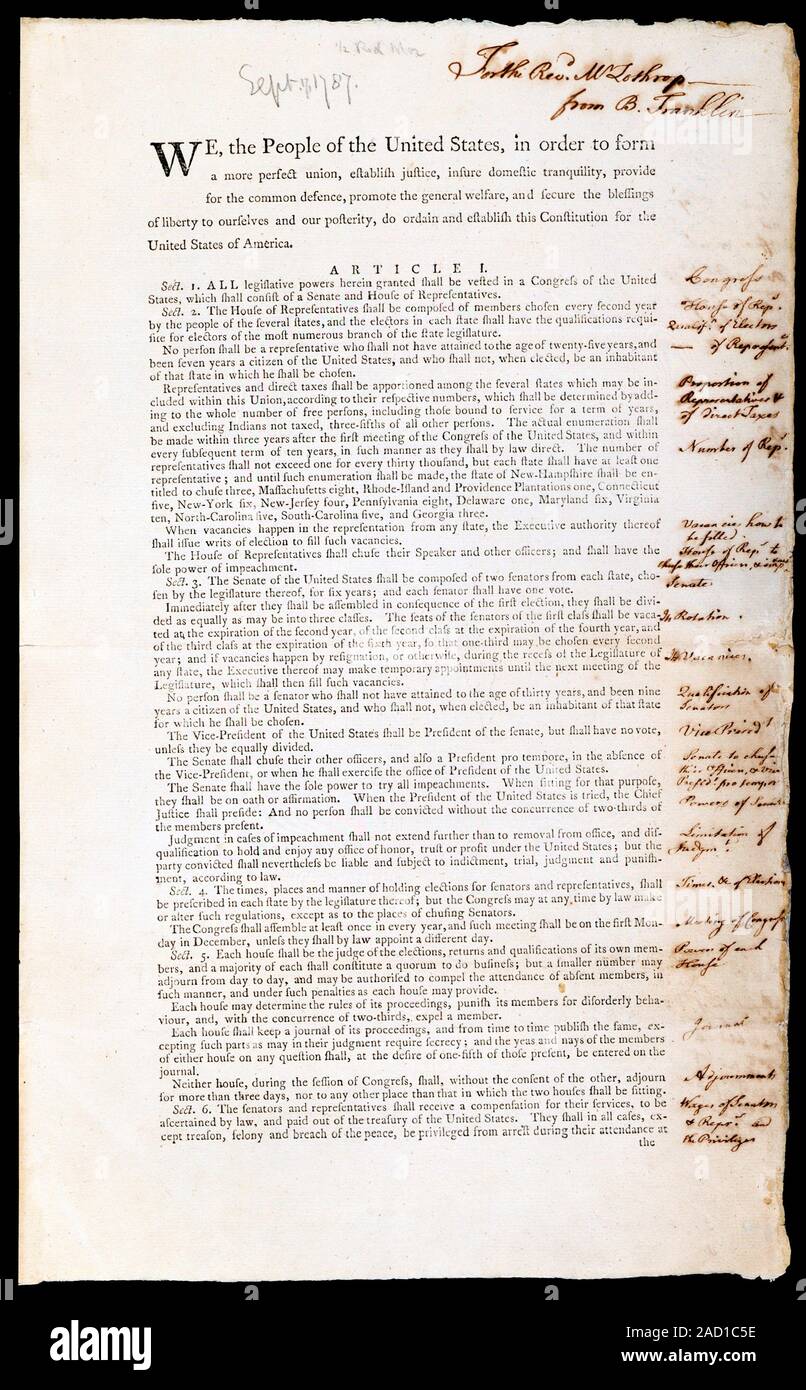 Sept. 17, 1787.
For the Revd. Mr Lothrop
from B. Franklin
WE, the People of the United States, in order to form
a more perfect union, eſtabliſh juſtice, inſure domeſtic tranquility, provide
for the common defence, promote the general welfare, and ſecure the bleſſings
of liberty to ourſelves and our poſterity, do ordain and eſtabliſh this Conſtitution for the
United States of America.
ARTICLE I.
Sect. 1. ALL legiſlative powers herein granted ſhall be veſted in a Congreſs of the United
States, which ſhall conſiſt of a Senate and Houſe of Repreſentatives.
Sect. 2. The Houſe of Repreſentatives ſhall be compoſed of members choſen every ſecond year
by the people of the ſeveral ſtates, and the electors in each ſtate ſhall have the qualifications requi-
ſite for electors of the moſt numerous branch of the ſtate legiſlature.
No perſon ſhall be a repreſentative who ſhall not have attained to the age of twenty-five years, and
been ſeven years a citizen of the United States, and who ſhall not, when elected, be an inhabitant
of that ſtate in which he ſhall be choſen.
Repreſentatives and direct taxes ſhall be apportioned among the ſeveral ſtates which may be in-
cluded within this Union, according to their reſpective numbers, which ſhall be determined by add-
ing to the whole number of free perſons, including thoſe bound to ſervice for a term of years,
and excluding Indians not taxed, three-fifths of all other perſons. The actual enumeration ſhall
be made within three years after the firſt meeting of the Congreſs of the United States, and within
every ſubſequent term of ten years, in ſuch manner as they ſhall by law direct. The number of
repreſentatives ſhall not exceed one for every thirty thouſand, but each ſtate ſhall have at leaſt one
repreſentative; and until ſuch enumeration ſhall be made, the ſtate of New-Hampſhire ſhall be en-
titled to chuſe three, Maſſachuſetts eight, Rhode-Iſland and Providence Plantations one, Connecticut
five, New-York ſix, New-Jerſey four, Pennſylvania eight, Delaware one, Maryland ſix, Virginia
ten, North-Carolina five, South-Carolina five, and Georgia three.
When vacancies happen in the repreſentation from any ſtate, the Executive authority thereof
ſhall iſſue writs of election to fill ſuch vacancies.
The Houſe of Repreſentatives ſhall chuſe their Speaker and other officers; and ſhall have the
ſole power of impeachment.
Sect. 3. The Senate of the United States ſhall be compoſed of two ſenators from each ſtate, cho-
ſen by the legiſlature thereof, for ſix years; and each ſenator ſhall have one vote.
Immediately after they ſhall be aſſembled in conſequence of the firſt election, they ſhall be divi-
ded as equally as may be into three claſſes. The ſeats of the ſenators of the firſt claſs ſhall be vaca-
ted at the expiration of the ſecond year, of the ſecond claſs at the expiration of the fourth year, and
of the third claſs at the expiration of the ſixth year, ſo that one-third may be choſen every ſecond
year; and if vacancies happen by reſignation, or otherwiſe, during the receſs of the Legiſlature of
any ſtate, the Executive thereof may make temporary appointments until the next meeting of the
Legiſlature, which ſhall then fill ſuch vacancies.
No perſon ſhall be a ſenator who ſhall not have attained to the age of thirty years, and been nine
years a citizen of the United States, and who ſhall not, when elected, be an inhabitant of that ſtate
for which he ſhall be choſen.
The Vice-Preſident of the United States ſhall be Preſident of the ſenate, but ſhall have no vote,
unleſs they be equally divided.
The Senate ſhall chuſe their other officers, and alſo a Preſident pro tempore, in the abſence of
the Vice-Preſident, or when he ſhall exerciſe the office of Preſident of the United States.
The Senate ſhall have the ſole power to try all impeachments. When ſitting for that purpoſe,
they ſhall be on oath or affirmation. When the Preſident of the United States is tried, the Chief
Juſtice ſhall preſide: And no perſon ſhall be convicted without the concurrence of two-thirds of
the members preſent.
Judgment in caſes of impeachment ſhall not extend further than to removal from office, and diſ-
qualification to hold and enjoy any office of honor, truſt or profit under the United States; but the
party convicted ſhall nevertheleſs be liable and ſubject to indictment, trial, judgment and puniſh-
ment, according to law.
Sect. 4. The times, places and manner of holding elections for ſenators and repreſentatives, ſhall
be preſcribed in each ſtate by the legiſlature thereof; but the Congreſs may at any time by law make
or alter ſuch regulations, except as to the places of chuſing Senators.
The Congreſs ſhall aſſemble at leaſt once in every year, and ſuch meeting ſhall be on the firſt Mon-
day in December, unleſs they ſhall by law appoint a different day.
Sect. 5. Each houſe ſhall be the judge of the elections, returns and qualifications of its own mem-
bers, and a majority of each ſhall conſtitute a quorum to do buſineſs; but a ſmaller number may
adjourn from day to day, and may be authoriſed to compel the attendance of abſent members, in
ſuch manner, and under ſuch penalties as each houſe may provide.
Each houſe may determine the rules of its proceedings, puniſh its members for diſorderly beha-
viour, and, with the concurrence of two-thirds, expel a member.
Each houſe ſhall keep a journal of its proceedings, and from time to time publiſh the ſame, ex-
cepting ſuch parts as may in their judgment require ſecrecy; and the yeas and nays of the members
of either houſe on any queſtion ſhall, at the deſire of one-fifth of thoſe preſent, be entered on the
journal.
Neither houſe, during the ſeſſion of Congreſs, ſhall, without the conſent of the other, adjourn
for more than three days, nor to any other place than that in which the two houſes ſhall be ſitting.
Sect. 6. The ſenators and repreſentatives ſhall receive a compenſation for their ſervices, to be
aſcertained by law, and paid out of the treaſury of the United States. They ſhall in all caſes, ex-
cept treaſon, felony and breach of the peace, be privileged from arreſt during their attendance at
the
Congress
House of Reps.
Qualifns. of Electors
— of Represent.
Proportion of
Representatives &
of direct Taxes
Number of Reps.
Vacancies how to
be filled.
House of Reps. to
chuse their Officers, &
Senate.
Its Rotation.
Its Vacancies.
Qualification of
Senators
Vice Presidt
Senate to chuse
their Officers, & Vice
Presidt. pro tempor
Powers of Senate
Limitation of
Judgmt.
Times. &c of Elections
Meeting of Congress
Powers of each
House
Journal
Adjournments
Wages of Senators
& Reprs. and
the Privileges
alamy
Image ID: 2AD1C5E
www.alamy.com